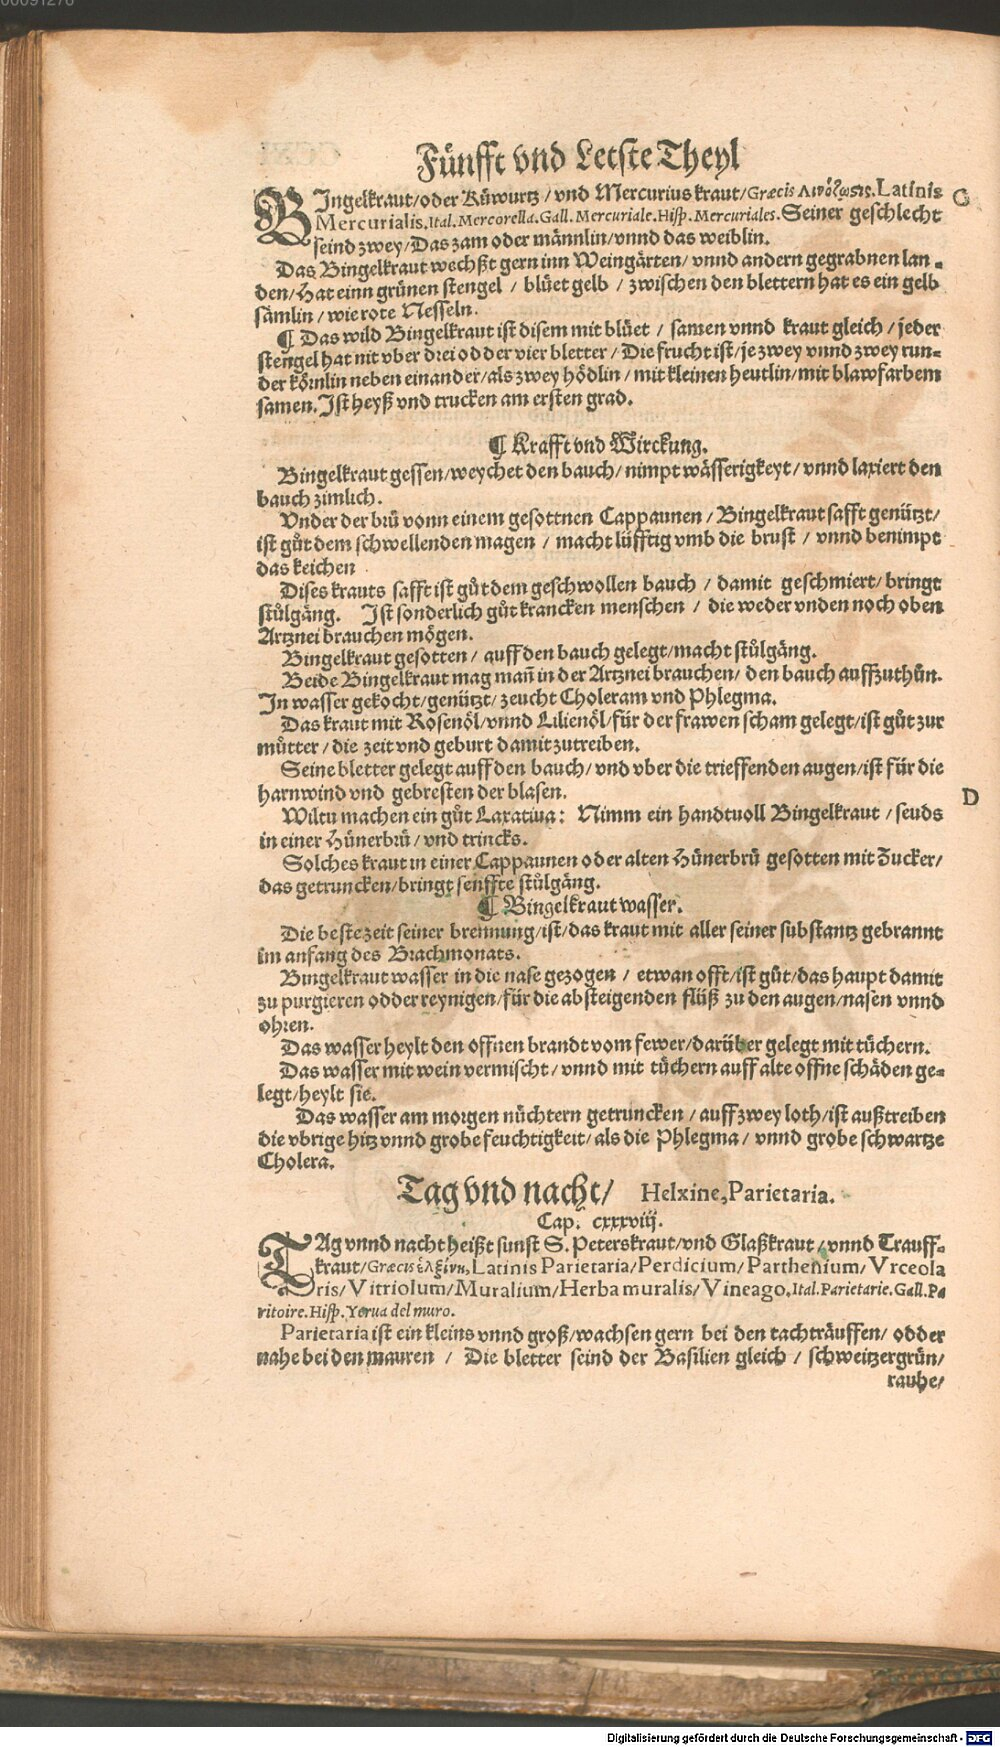 00091276
Fünfft vnd Letste Theyl
BIngelkraut/oder Kůwurtz/vnd Mercurius kraut/Græcis Λινόζωστις. Latinis
Mercurialis. Ital. Mercorella. Gall. Mercuriale. Hisp. Mercuriales. Seiner geschlecht
seind zwey/Das zam oder männlin/vnnd das weiblin.
C
Das Bingelkraut wechßt gern inn Weingärten/vnnd andern gegrabnen lan-
den/Hat einn grünen stengel / blüet gelb / zwischen den blettern hat es ein gelb
sämlin/wie rote Nesseln.
¶ Das wild Bingelkraut ist disem mit blüet / samen vnnd kraut gleich/jeder
stengel hat nit vber drei odder vier bletter/Die frucht ist/je zwey vnnd zwey run-
der körnlin neben einander/als zwey hödlin/mit kleinen heutlin/mit blawfarbem
samen. Ist heyß vnd trucken am ersten grad.
¶ Krafft vnd Wirckung.
Bingelkraut gessen/weychet den bauch/nimpt wässerigkeyt/vnnd laxiert den
bauch zimlich.
Vnder der brü vonn einem gesottnen Cappaunen/Bingelkraut safft genützt/
ist gůt dem schwellenden magen / macht lüfftig vmb die brust / vnnd benimpt
das keichen
Dises krauts safft ist gůt dem geschwollen bauch / damit geschmiert/bringt
stůlgäng. Ist sonderlich gůt krancken menschen / die weder vnden noch oben
Artznei brauchen mögen.
Bingelkraut gesotten/auff den bauch gelegt/macht stůlgäng.
Beide Bingelkraut mag mañ in der Artznei brauchen/den bauch auffzuthůn.
In wasser gekocht/genützt/zeucht Choleram vnd Phlegma.
Das kraut mit Rosenöl/vnnd Lilienöl/für der frawen scham gelegt/ist gůt zur
můtter/die zeit vnd geburt damit zutreiben.
Seine bletter gelegt auff den bauch/vnd vber die trieffenden augen/ist für die
harnwind vnd gebresten der blasen.
D
Wiltu machen ein gůt Laxatiua: Nimm ein handtuoll Bingelkraut/seuds
in einer Hünerbrü/vnd trincks.
Solches kraut in einer Cappaunen oder alten Hünerbrü gesotten mit Zucker/
das getruncken/bringt senffte stůlgäng.
¶ Bingelkraut wasser.
Die beste zeit seiner brennung/ist/das kraut mit aller seiner substantz gebrannt
im anfang des Brachmonats.
Bingelkraut wasser in die nase gezogen / etwan offt/ist gůt/das haupt damit
zu purgieren odder reynigen/für die absteigenden flüß zu den augen/nasen vnnd
ohren.
Das wasser heylt den offnen brandt vom fewer/darüber gelegt mit tüchern.
Das wasser mit wein vermischt/vnnd mit tüchern auff alte offne schäden ge-
legt/heylt sie.
Das wasser am morgen nüchtern getruncken/auff zwey loth/ist außtreiben
die vbrige hitz vnnd grobe feuchtigkeit/als die Phlegma/vnnd grobe schwartze
Cholera.
Tag vnd nacht/ Helxine, Parietaria.
Cap. cxxxviij.
TAg vnnd nacht heißt sunst S. Peterskraut/vnd Glaßkraut/vnnd Trauff-
kraut/Græcis ἑλξίνη, Latinis Parietaria/Perdicium/Parthenium/Vrceola
ris/Vitriolum/Muralium/Herba muralis/Vineago. Ital. Parietarie. Gall. Pa
ritoire. Hisp. Yerua del muro.
Parietaria ist ein kleins vnnd groß/wachsen gern bei den tachträuffen/odder
nahe bei den mauren / Die bletter seind der Basilien gleich / schweitzergrün/
rauhe/
Digitalisierung gefördert durch die Deutsche Forschungsgemeinschaft - DFG